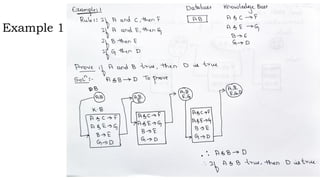 Example 1
Example:1
Database
Knowledge Base
Rules: If A and C, then F
AB
A & C → F
If A and E, then G
A & E → G
If B then E
B → E
If G then D
G → D
Prove if A and B true, then D is true
Sol:- A & B → D To prove
DB
A,B
A,B
E
A,B
E,G
A,B
E,G,D
K.B
A & C → F
A & E → G
B → E
G → D
A & C → F
A & E → G
B → E
G → D
A & C → F
A & E → G
B → E
G → D
∴ A & B → D
∴ If A & B true, then D is true